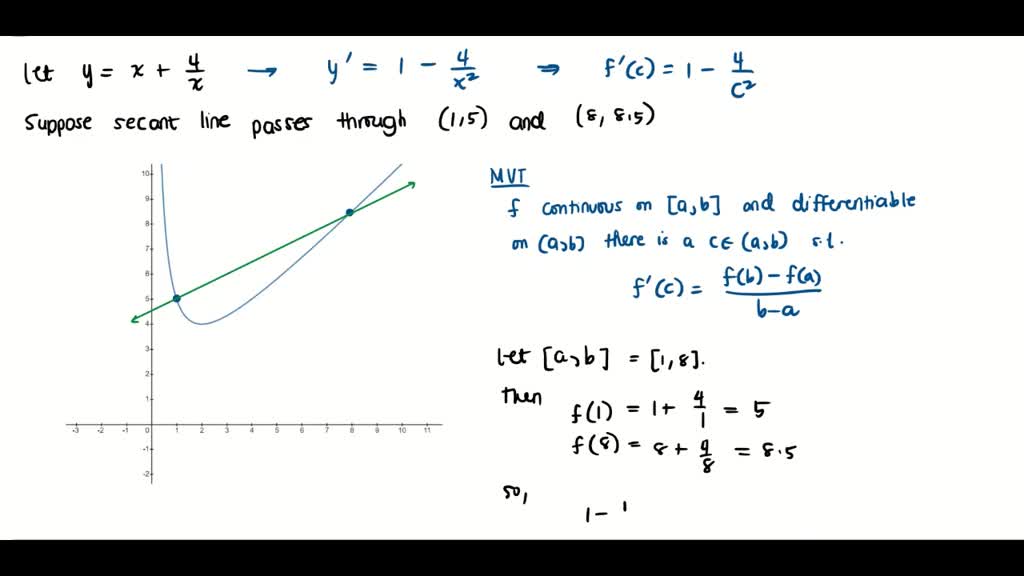 Let y = x + 4/x → y' = 1 - 4/x² ⇒ f'(c) = 1 - 4/c²
Suppose secant line passes through (1,5) and (8, 8.5)
MVT
f continuous on [a,b] and differentiable
on (a,b) there is a c∈(a,b) s.t.
f'(c) = f(b)-f(a)/b-a
let [a,b] = [1,8].
then
f(1) = 1 + 4/1 = 5
f(8) = 8 + 4/8 = 8.5
so,
1 -
10
9
8
7
6
5
4
3
2
1
-3 -2 -1 0 1 2 3 4 5 6 7 8 9 10 11
-1
-2